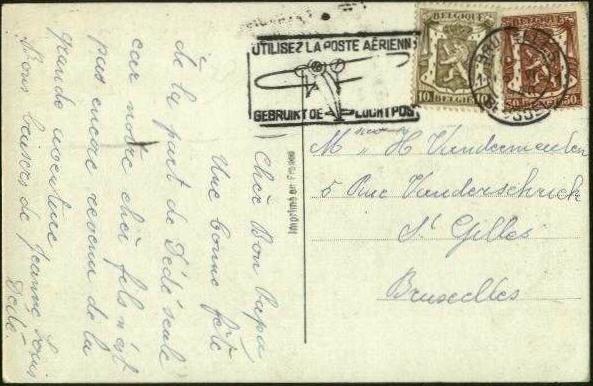 UTILISEZ LA POSTE AÉRIENNE
GEBRUIKT DE LUCHTPOST
BELGIQUE
10 BELGIE 10
BELGIQUE
50 BELGIE 50
BRUXELLES
BRUSSEL
Cher Bon Papa
Une bonne fête
de la part de Dédé seule
car notre cher fils n'est
pas encore revenu de la
grande aventure
Bons baisers de Jeanne Louis
Dédé.
M H Vandermeulen
5 Rue Vanderschrick
St Gilles
Bruxelles